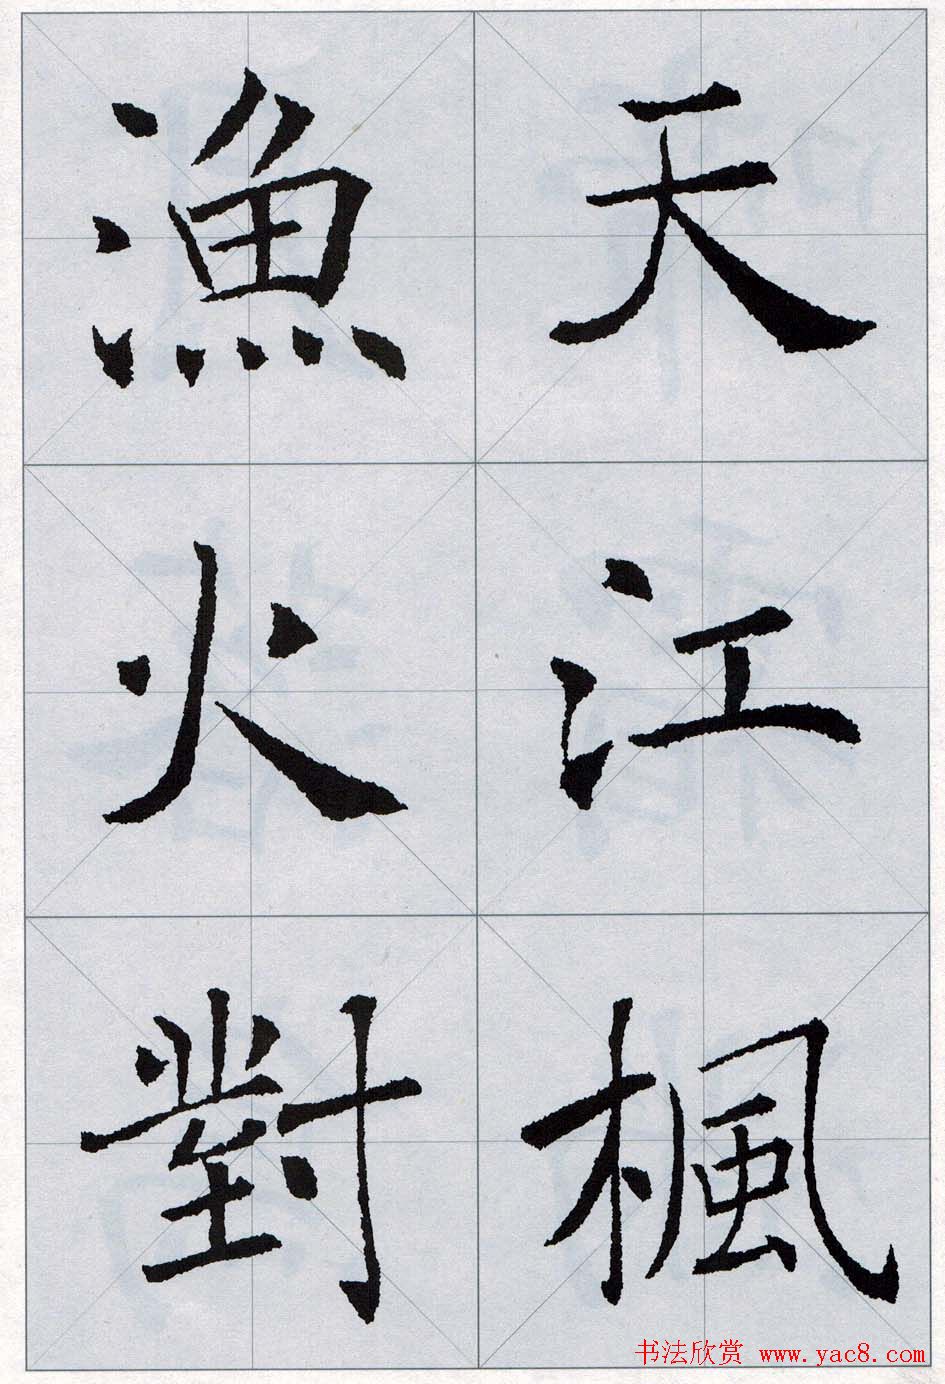 天江楓
漁火對
书法欣赏 www.yac8.com